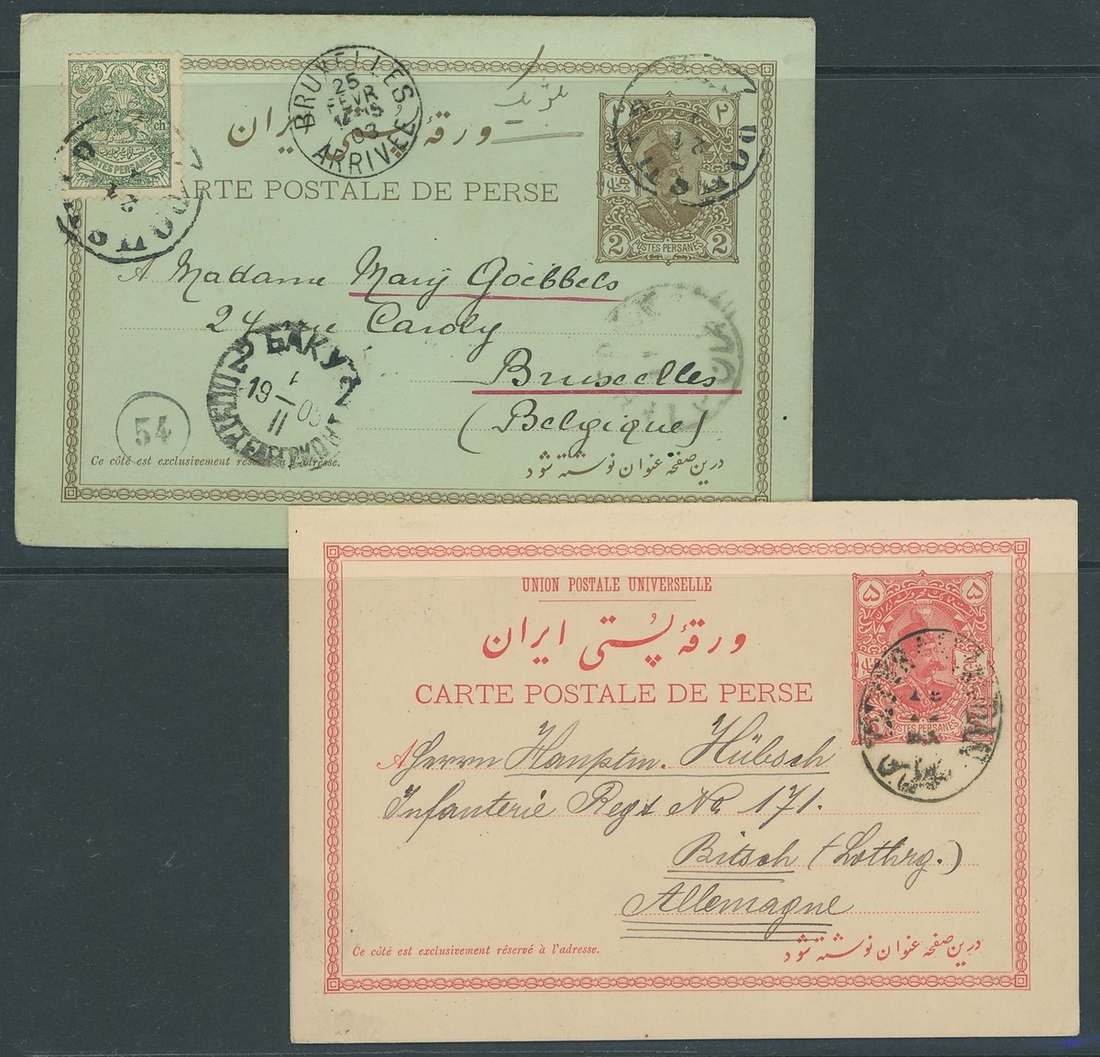 BRUXELLES
25
FEVR
03
ARRIVÉE
بلژیک
ch
POSTES PERSANES
ورقهٔ پستی ایران
CARTE POSTALE DE PERSE
۲ ۲
2 2
POSTES PERSANES
A Madame Mary Goebbels
24 rue Caroly
Bruxelles
(Belgique)
БАКУ
19
II
54
Ce côté est exclusivement réservé à l'adresse.
درین صفحه عنوان نوشته شود
UNION POSTALE UNIVERSELLE
ورقهٔ پستی ایران
CARTE POSTALE DE PERSE
۵ ۵
POSTES PERSANES
A Herrn Hauptm. Hübsch
Infanterie Regt No. 171.
Bitsch (Lothrg.)
Allemagne
Ce côté est exclusivement réservé à l'adresse.
درین صفحه عنوان نوشته شود